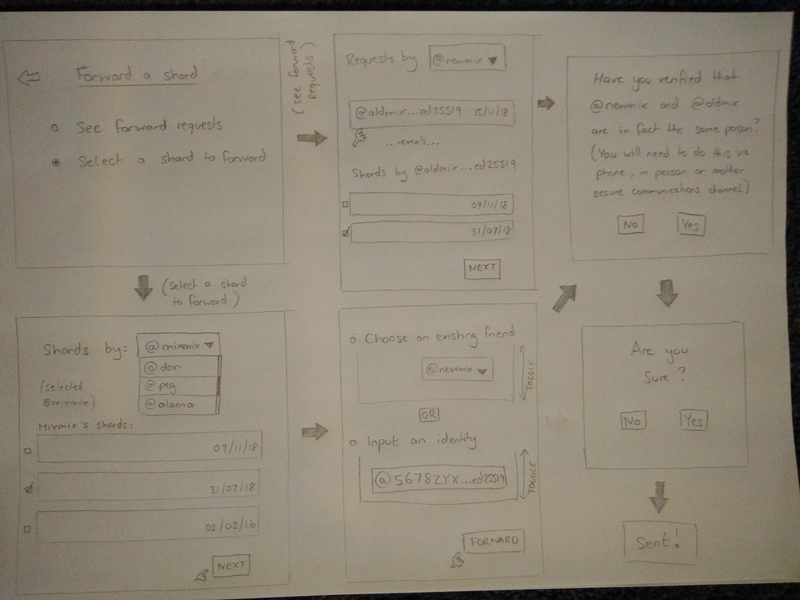 Forward a shard
See forward requests
Select a shard to forward
(see forward
requests)
Requests by @newmix
@oldmix...ed25519 15/11/18
...reveals...
Shards by @oldmix...ed25519
09/11/18
31/07/18
NEXT
Have you verified that
@newmix and @oldmix
are in fact the same person?
(You will need to do this via
phone, in person or another
secure communications channel.)
No Yes
(Select a shard
to forward)
Shards by: @mixmix
@dan
@peg
@alanna
(selected
@mixmix)
Mixmix's shards:
09/11/18
31/07/18
02/02/16
NEXT
Choose an existing friend
@newmix
TOGGLE
OR
Input an identity
@5678ZYX...ed25519
TOGGLE
FORWARD
Are you
Sure?
No Yes
Sent!